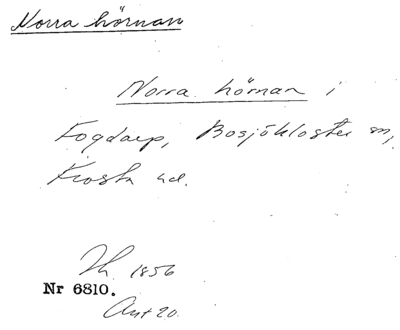 Norra hörnan
Norra hörnan i
Fogdarp, Bosjökloster sn,
Frosta hd.
Th. 1856
Nr 6810.
Avt 20.